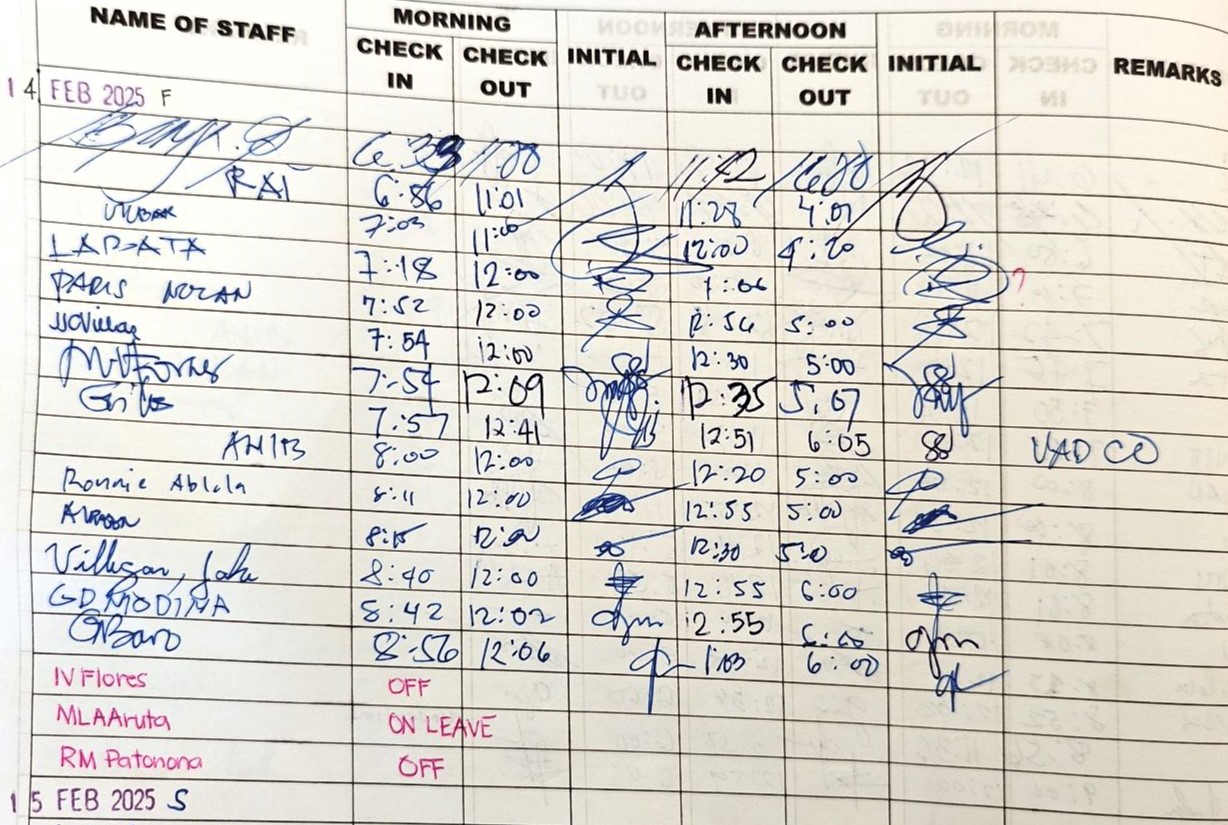 NAME OF STAFF MORNING CHECK IN CHECK OUT INITIAL AFTERNOON CHECK IN CHECK OUT INITIAL REMARKS
14 FEB 2025 F
11:00
RAI 6:56 11:01 11:28 4:01
7:03 11:00 12:00 4:20
LAPATA 7:18 12:00 1:06
PARIS NOLAN 7:52 12:00 12:56 5:00
JJCVillas 7:54 12:00 12:30 5:00
7:54 12:09 12:35 5:07
7:57 12:41 12:51 6:05 VADCO
ANIB 8:00 12:00 12:20 5:00
Ronnie Ablola 8:11 12:00 12:55 5:00
8:15 12:00 12:30 5:0
Villegan, Jake 8:40 12:00 12:55 6:00
GDMODINA 8:42 12:02 12:55
8:56 12:06 1:03 6:00
IV Flores OFF
MLAAruta ON LEAVE
RM Patonona OFF
15 FEB 2025 S